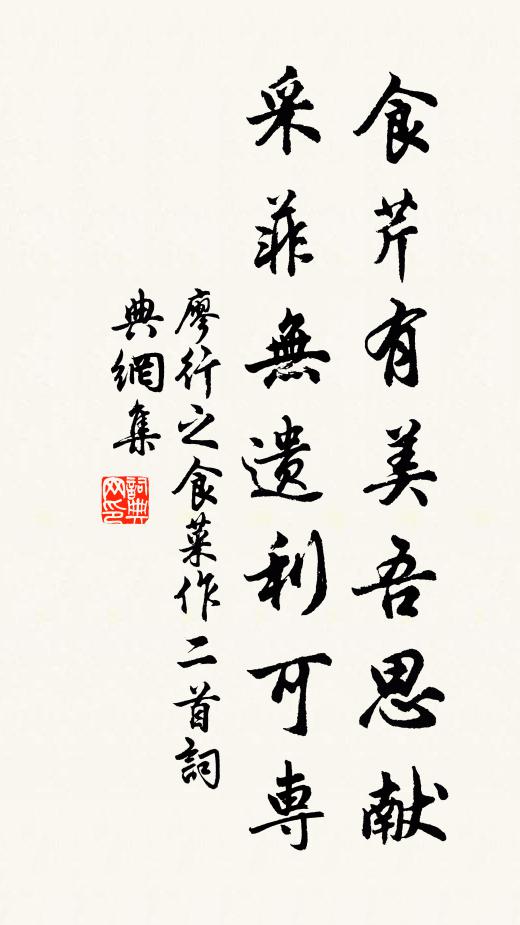 食芹有美吾思献
采菲無遺利可専
廖行之食菜作二首詞
典網集
詞典网印